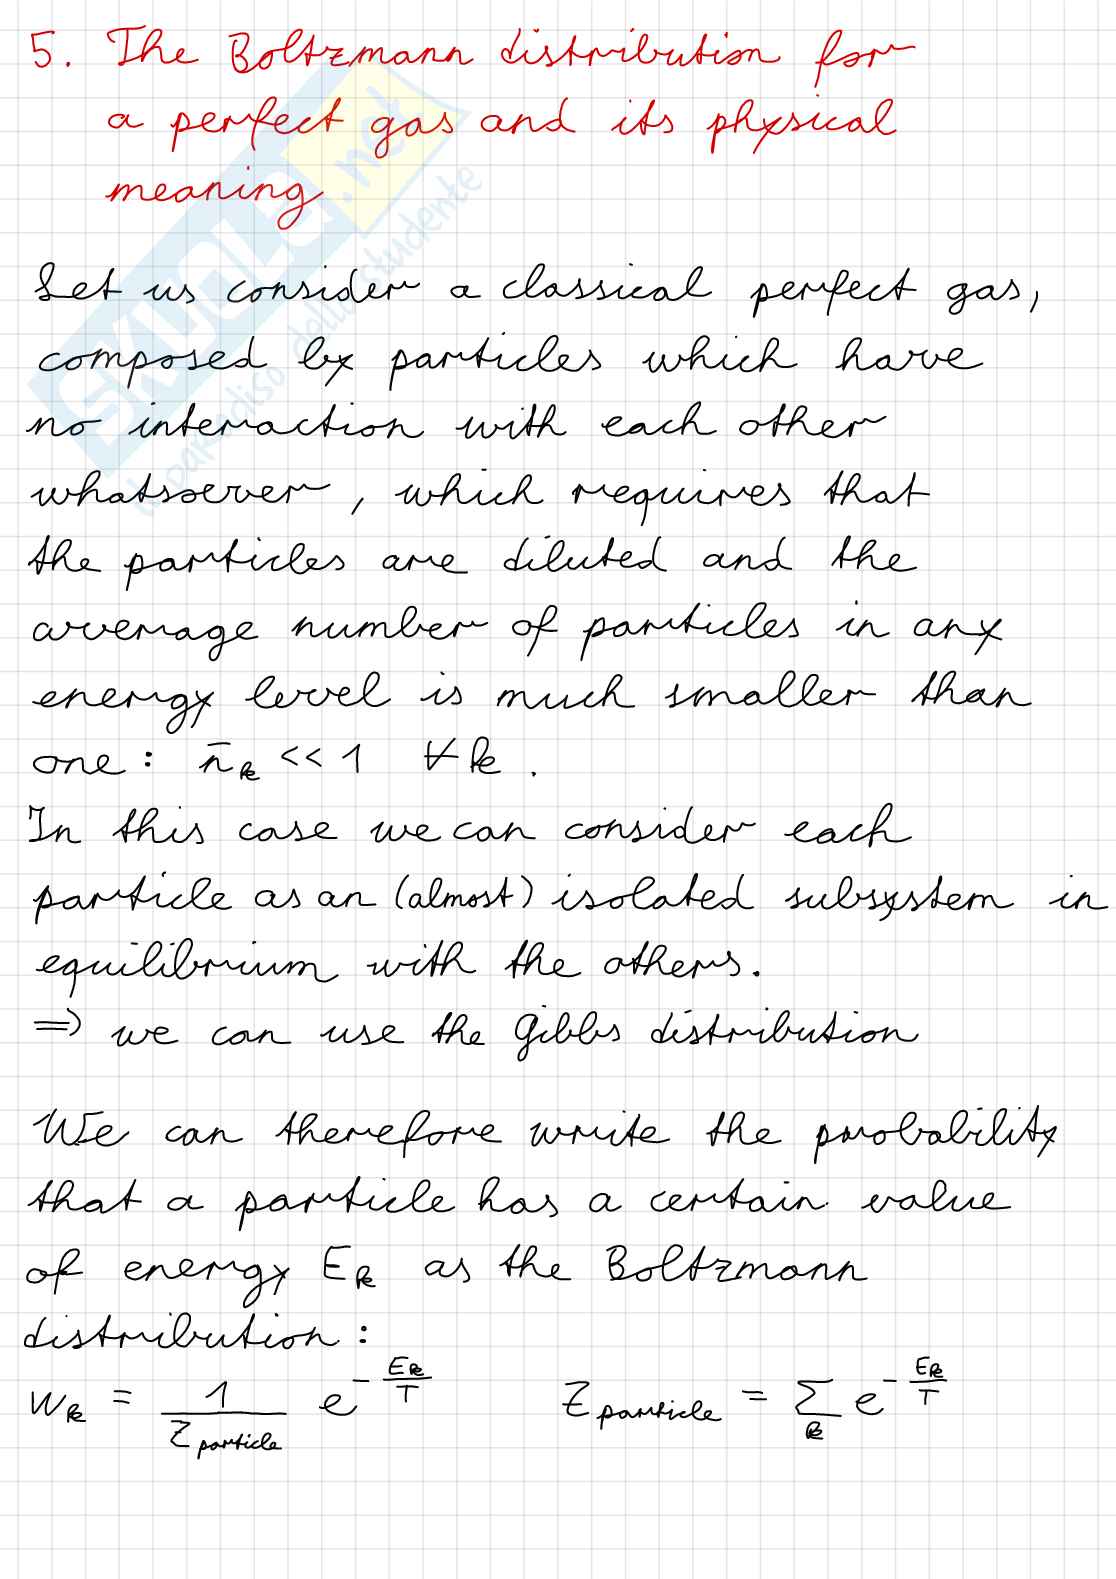 5. The Boltzmann distribution for
a perfect gas and its physical
meaning
SKUOLA.net
il paradiso dello studente
Let us consider a classical perfect gas,
composed by particles which have
no interaction with each other
whatsoever, which requires that
the particles are diluted and the
average number of particles in any
energy level is much smaller than
one: n̄ₖ << 1 ∀k.
In this case we can consider each
particle as an (almost) isolated subsystem in
equilibrium with the others.
=> we can use the Gibbs distribution
We can therefore write the probability
that a particle has a certain value
of energy Eₖ as the Boltzmann
distribution:
wₖ = 1/Z_particle e^(-Eₖ/T) Z_particle = Σₖ e^(-Eₖ/T)